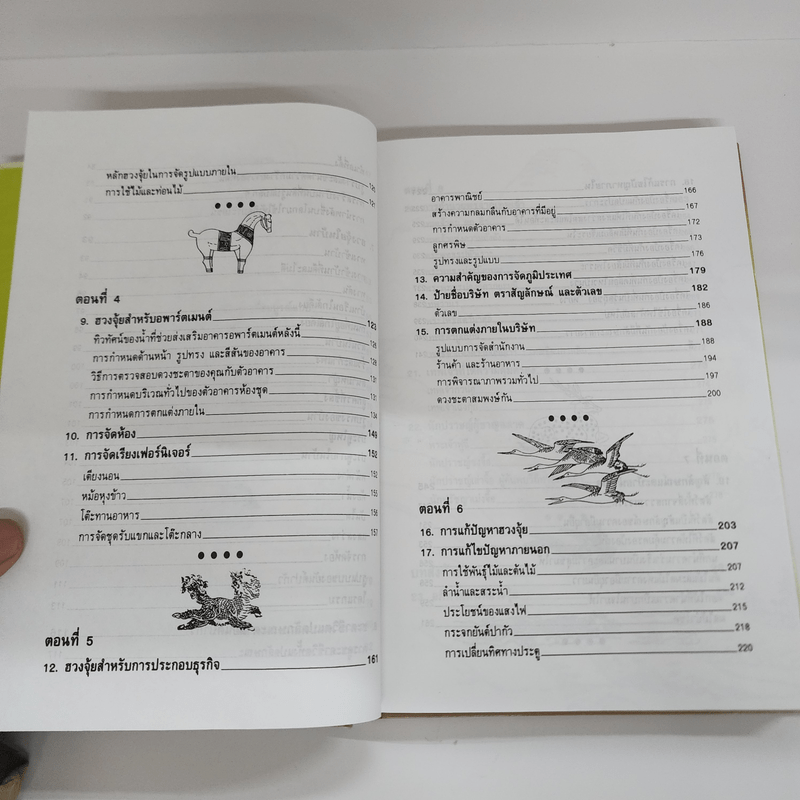 หลักฮวงจุ้ยในการจัดรูปแบบภายใน
การใช้ไม้และท่อนไม้ 121
ตอนที่ 4
9. ฮวงจุ้ยสำหรับอพาร์ตเมนต์ 123
ทิวทัศน์ของน้ำที่ช่วยส่งเสริมอาคารอพาร์ตเมนต์หลังนี้
การกำหนดด้านหน้า รูปทรง และสีสันของอาคาร
วิธีการตรวจสอบดวงชะตาของคุณกับตัวอาคาร 131
การกำหนดบริเวณทั่วไปของตัวอาคารห้องชุด 131
การกำหนดการตกแต่งภายใน 134
10. การจัดห้อง 149
11. การจัดเรียงเฟอร์นิเจอร์ 153
เตียงนอน 153
หม้อหุงข้าว 155
โต๊ะทานอาหาร 156
การจัดชุดรับแขกและโต๊ะกลาง 157
ตอนที่ 5
12. ฮวงจุ้ยสำหรับการประกอบธุรกิจ 161
อาคารพาณิชย์ 166
สร้างความกลมกลืนกับอาคารที่มีอยู่ 167
การกำหนดตัวอาคาร 172
ลูกศรพิษ 173
รูปทรงและรูปแบบ 176
13. ความสำคัญของการจัดภูมิประเทศ 179
14. ป้ายชื่อบริษัท ตราสัญลักษณ์ และตัวเลข 182
ตัวเลข 186
15. การตกแต่งภายในบริษัท 188
รูปแบบการจัดสำนักงาน 188
ร้านค้า และร้านอาหาร 194
การพิจารณาภาพรวมทั่วไป 197
ดวงชะตาสมพงษ์กัน 200
ตอนที่ 6
16. การแก้ปัญหาฮวงจุ้ย 203
17. การแก้ไขปัญหาภายนอก 207
การใช้พันธุ์ไม้และต้นไม้ 207
ลำน้ำและสระน้ำ 212
ประโยชน์ของแสงไฟ 215
กระจกยันต์ปากัว 218
การเปลี่ยนทิศทางประตู 220